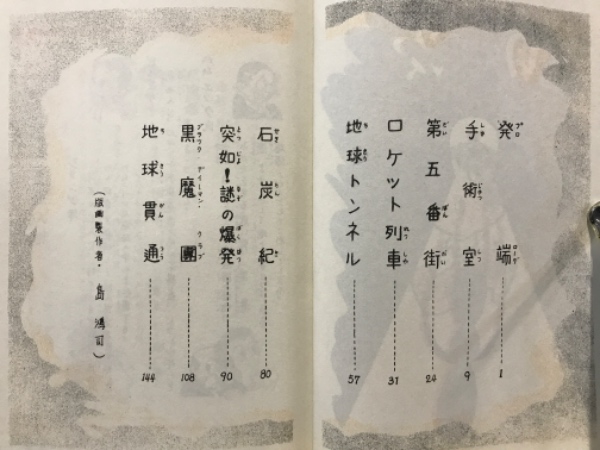 発端 1
手術室 9
第五番街 24
ロケット列車 31
地球トンネル 57
石炭紀 80
突如!謎の爆発 90
黒魔團 108
地球貫通 144
(版画製作者・島 鴻司)